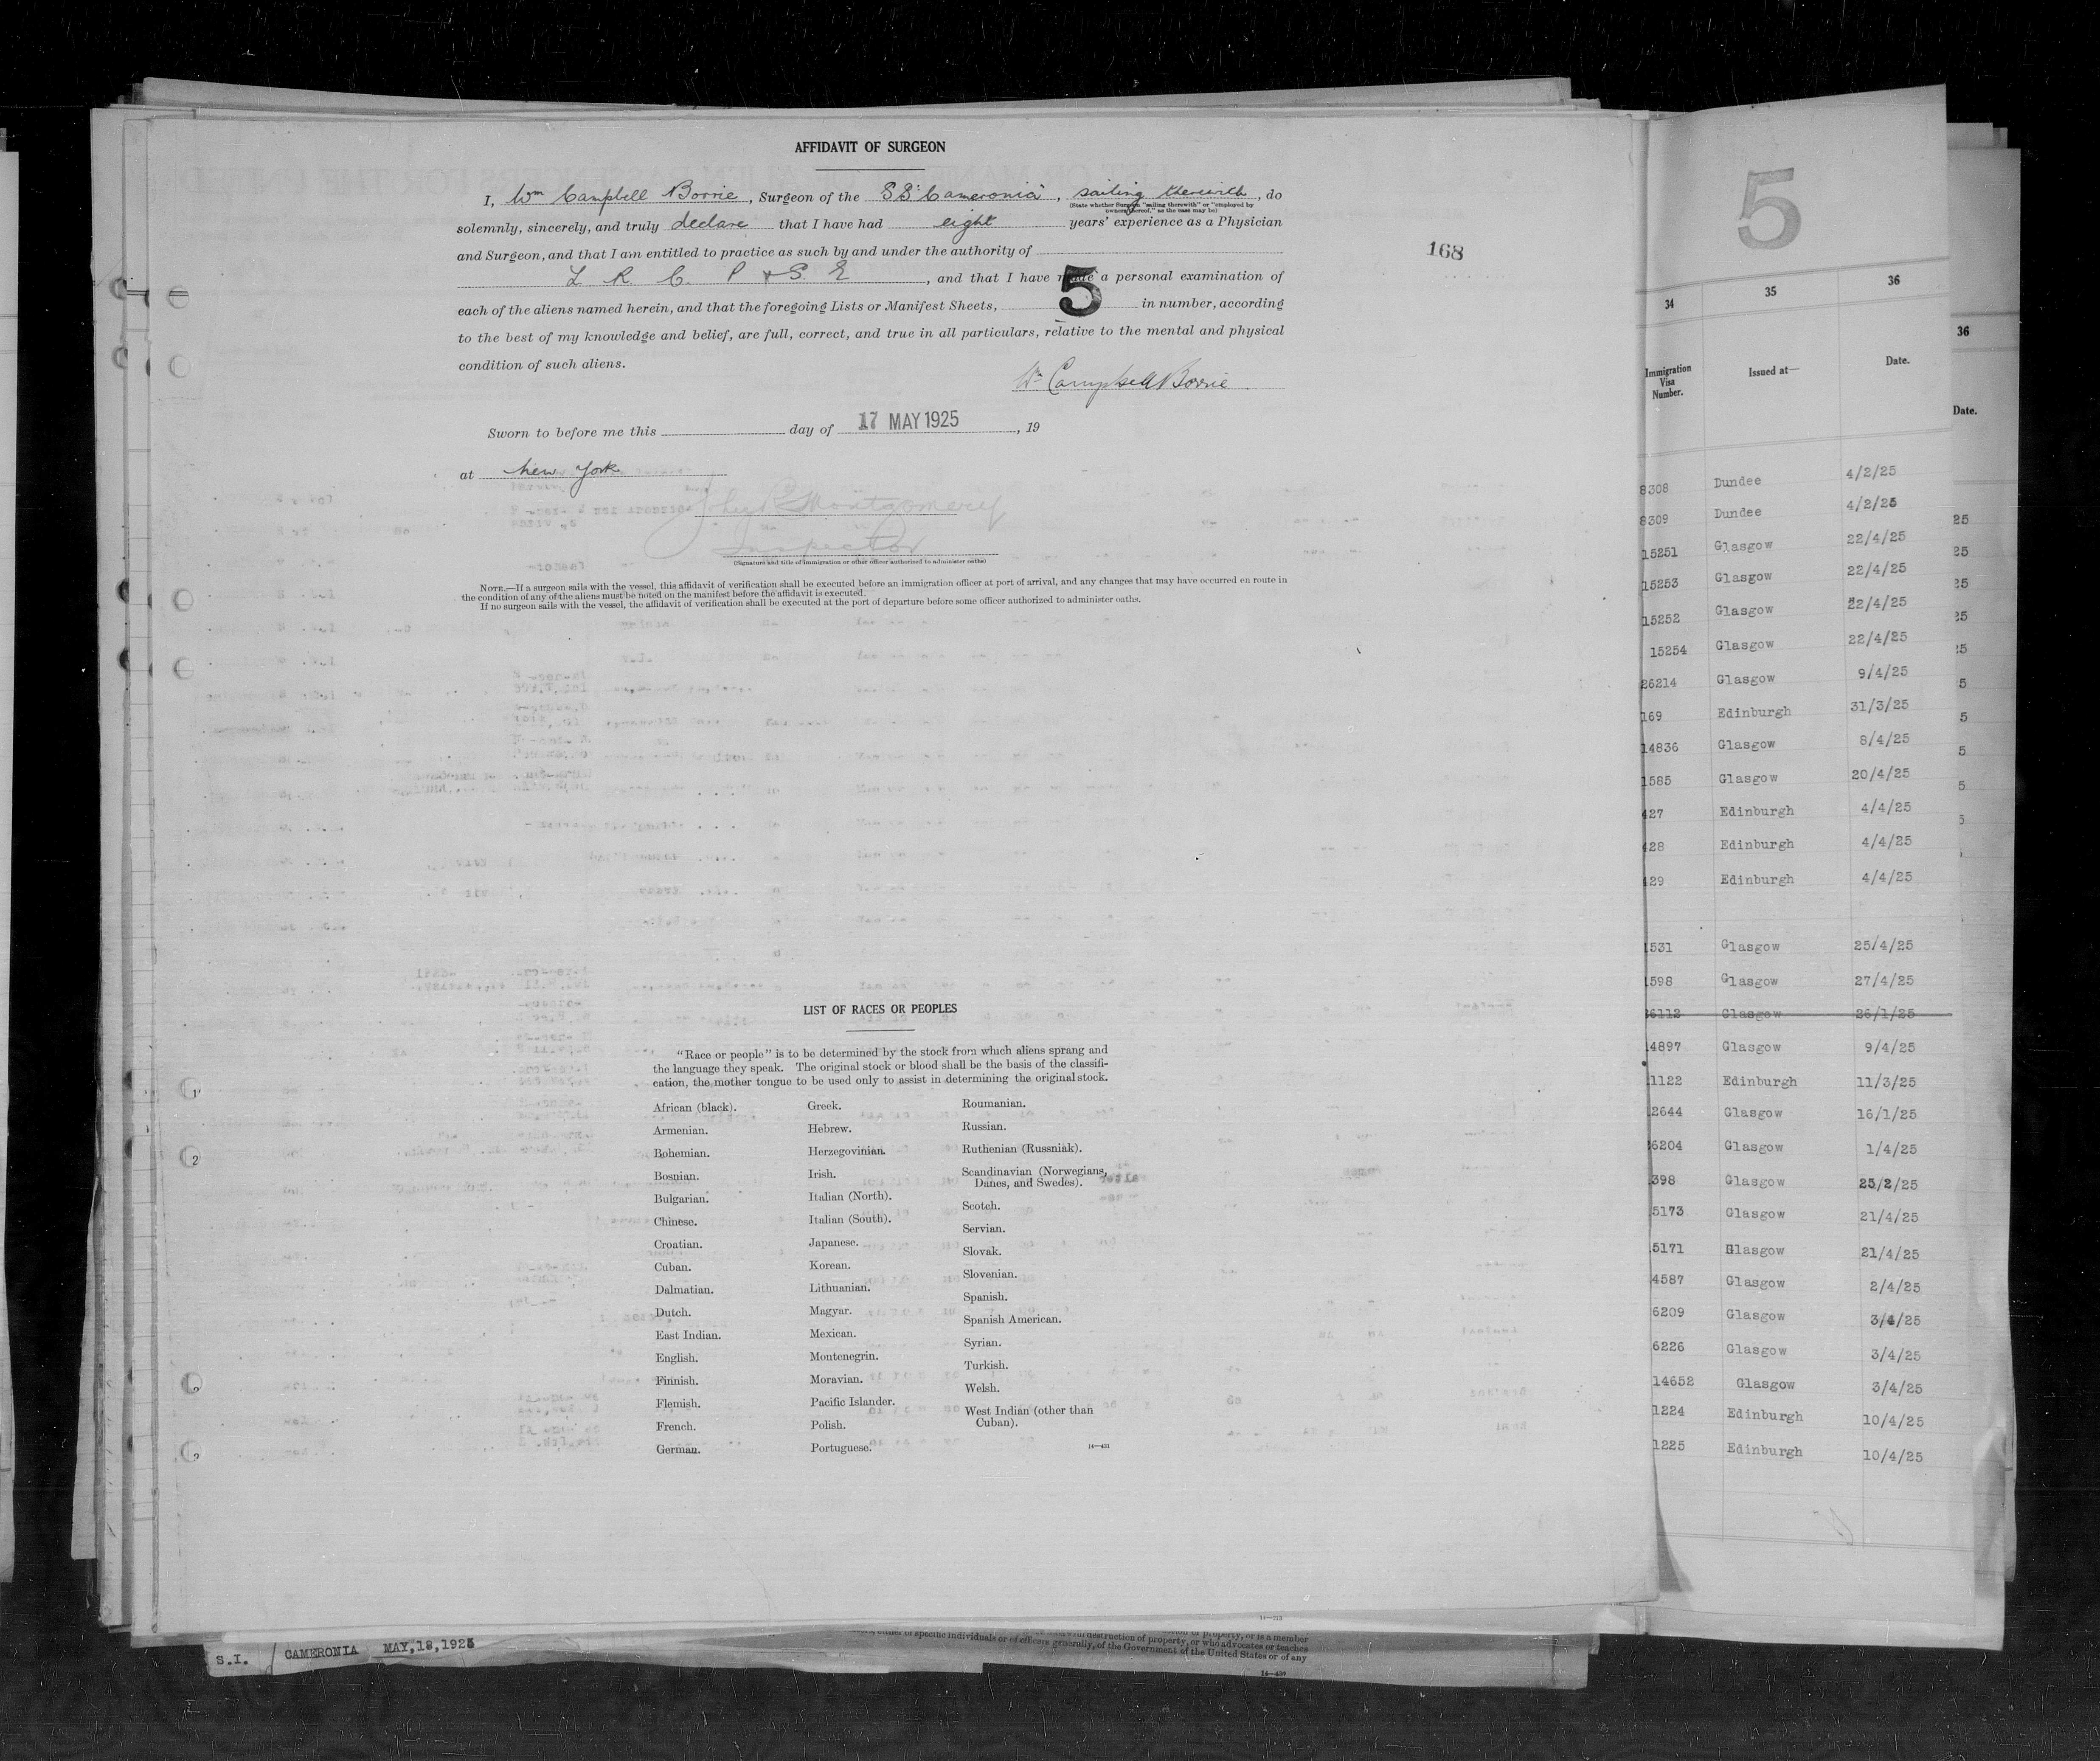 AFFIDAVIT OF SURGEON
I, Wm Campbell Borrie, Surgeon of the SS "Cameronia", sailing therewith, do
(State whether Surgeon "sailing therewith" or "employed by owners thereof," as the case may be)
solemnly, sincerely, and truly declare that I have had eight years' experience as a Physician
and Surgeon, and that I am entitled to practice as such by and under the authority of
L R C P & S E, and that I have made a personal examination of
each of the aliens named herein, and that the foregoing Lists or Manifest Sheets, 5 in number, according
to the best of my knowledge and belief, are full, correct, and true in all particulars, relative to the mental and physical
condition of such aliens.
Wm Campbell Borrie
Sworn to before me this day of 17 MAY 1925, 19
at New York
Montgomery
Inspector
(Signature and title of immigration or other officer authorized to administer oaths)
NOTE.—If a surgeon sails with the vessel, this affidavit of verification shall be executed before an immigration officer at port of arrival, and any changes that may have occurred en route in
the condition of any of the aliens must be noted on the manifest before the affidavit is executed.
If no surgeon sails with the vessel, the affidavit of verification shall be executed at the port of departure before some officer authorized to administer oaths.
168
LIST OF RACES OR PEOPLES
"Race or people" is to be determined by the stock from which aliens sprang and
the language they speak. The original stock or blood shall be the basis of the classifi-
cation, the mother tongue to be used only to assist in determining the original stock.
African (black).
Armenian.
Bohemian.
Bosnian.
Bulgarian.
Chinese.
Croatian.
Cuban.
Dalmatian.
Dutch.
East Indian.
English.
Finnish.
Flemish.
French.
German.
Greek.
Hebrew.
Herzegovinian.
Irish.
Italian (North).
Italian (South).
Japanese.
Korean.
Lithuanian.
Magyar.
Mexican.
Montenegrin.
Moravian.
Pacific Islander.
Polish.
Portuguese.
Roumanian.
Russian.
Ruthenian (Russniak).
Scandinavian (Norwegians,
Danes, and Swedes).
Scotch.
Servian.
Slovak.
Slovenian.
Spanish.
Spanish American.
Syrian.
Turkish.
Welsh.
West Indian (other than
Cuban).
14—421
5
34 35 36
Immigration Visa Number. Issued at— Date.
8308 Dundee 4/2/25
8309 Dundee 4/2/25
15251 Glasgow 22/4/25
15253 Glasgow 22/4/25
15252 Glasgow 22/4/25
15254 Glasgow 22/4/25
26214 Glasgow 9/4/25
169 Edinburgh 31/3/25
14836 Glasgow 8/4/25
1585 Glasgow 20/4/25
427 Edinburgh 4/4/25
428 Edinburgh 4/4/25
429 Edinburgh 4/4/25
1531 Glasgow 25/4/25
1598 Glasgow 27/4/25
26112 Glasgow 26/1/25
4897 Glasgow 9/4/25
1122 Edinburgh 11/3/25
2644 Glasgow 16/1/25
6204 Glasgow 1/4/25
398 Glasgow 25/2/25
5173 Glasgow 21/4/25
5171 Glasgow 21/4/25
4587 Glasgow 2/4/25
6209 Glasgow 3/4/25
6226 Glasgow 3/4/25
14652 Glasgow 3/4/25
1224 Edinburgh 10/4/25
1225 Edinburgh 10/4/25
36
Date.
25
25
25
25
25
25
5
5
5
5
5
14—213
property, or is a member
destruction of property, or who advocates or teaches
of specific individuals or of officers generally, of the Government of the United States or of any
14—430
S.I. CAMERONIA MAY,18,1925